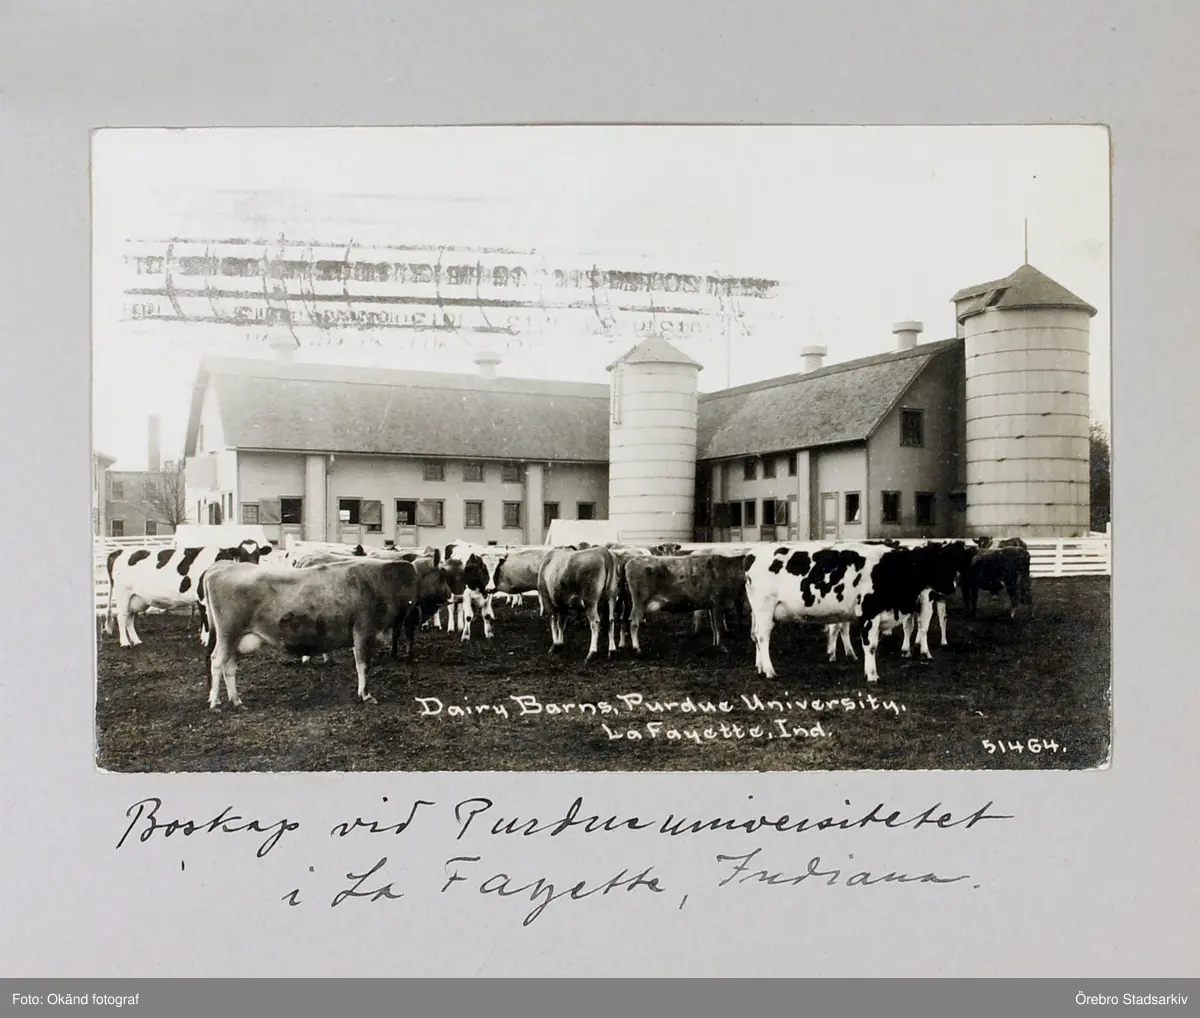 Dairy Barns, Purdue University,
La Fayette, Ind.
51464.
Boskap vid Purdueuniversitetet
i La Fayette, Indiana.
Foto: Okänd fotograf
Örebro Stadsarkiv